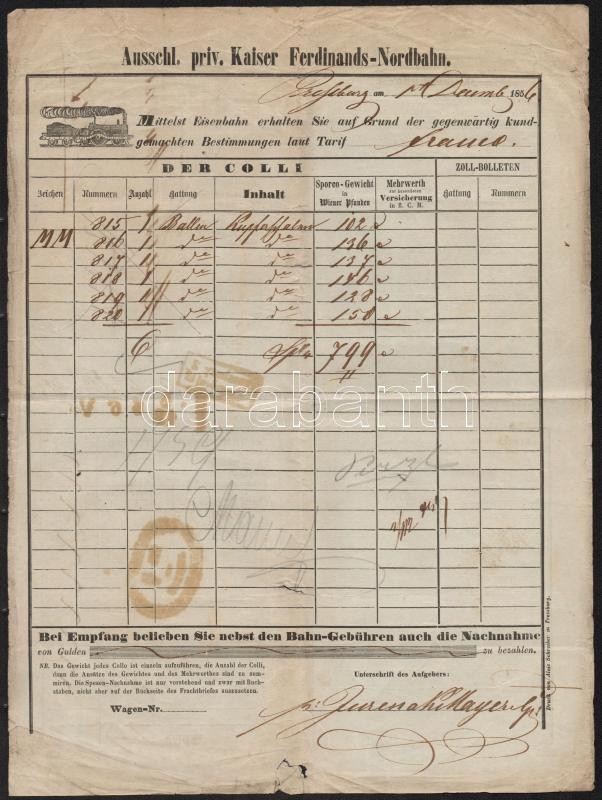 Ausschl. priv. Kaiser Ferdinands-Nordbahn.
Pressburg am 1t Decemb 1856
Mittelst Eisenbahn erhalten Sie auf Grund der gegenwärtig kund-
gemachten Bestimmungen laut Tarif franco.
DER COLLI ZOLL-BOLLETEN
Zeichen Nummern Anzahl Gattung Inhalt Sporco-Gewicht in Wiener Pfunden Mehrwerth zur besonderen Versicherung in fl. C. M. Gattung Nummern
815 1 Ballen 102
MM 816 1 do do 136
817 1 do do 137
818 1 do do 146
819 1 do do 128
820 1 do do 150
6 799
darabanth
Bei Empfang belieben Sie nebst den Bahn-Gebühren auch die Nachnahme
von Gulden zu bezahlen.
NB. Das Gewicht jedes Collo ist einzeln aufzuführen, die Anzahl der Colli,
dann die Ansätze des Gewichtes und des Mehrwerthes sind zu sum-
miren. Die Spesen-Nachnahme ist nur vorstehend und zwar mit Buch-
staben, nicht aber auf der Rückseite des Frachtbriefes auszusetzen.
Unterschrift des Aufgebers:
Wagen-Nr.
Druck von Alois Schreiber in Pressburg.